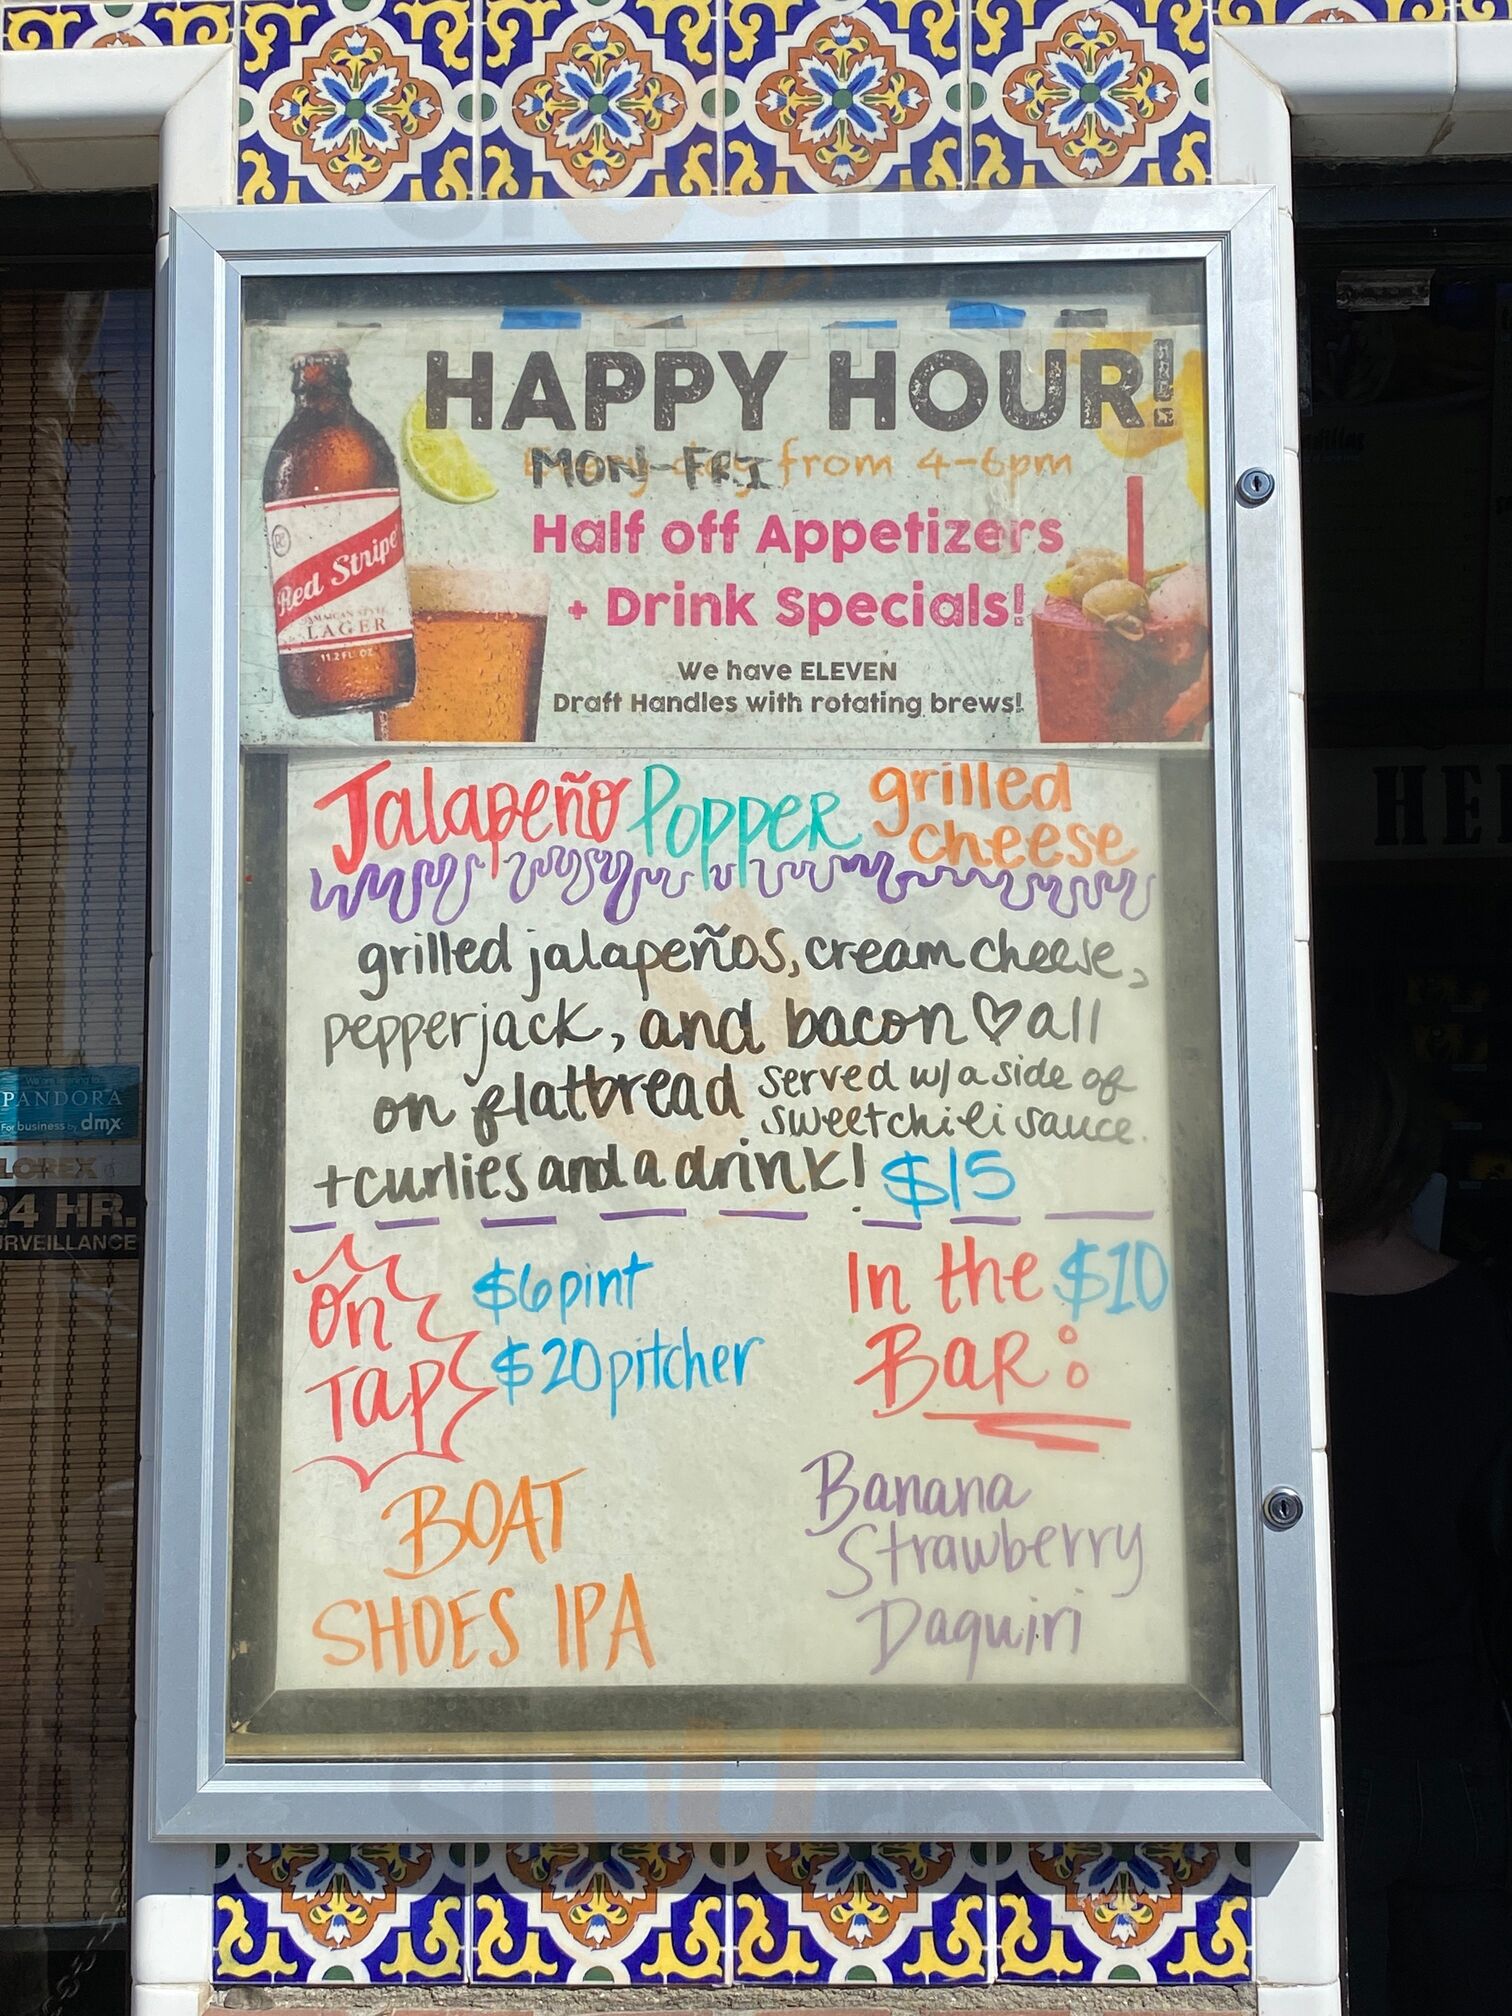 HAPPY HOUR!
MON-FRI from 4-6pm
Half off Appetizers
+ Drink Specials!
We have ELEVEN
Draft Handles with rotating brews!
Red Stripe
JAMAICAN STYLE
LAGER
11.2 FL OZ
Jalapeño Popper grilled
cheese
grilled jalapeños, cream cheese,
pepperjack, and bacon ♡ all
on flatbread served w/ a side of
sweet chili sauce.
+ curlies and a drink! $15
On
Tap
$6 pint
$20 pitcher
BOAT
SHOES IPA
In the $10
Bar:
Banana
Strawberry
Daquiri
PANDORA
For business by dmx
LOREX
24 HR.
URVEILLANCE
HE